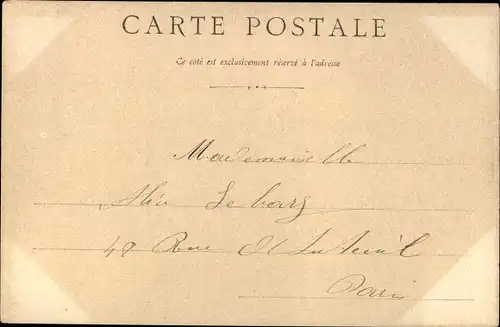 CARTE POSTALE
Ce côté est exclusivement réservé à l'adresse
Mademoiselle
Le barg
48 Rue d'Auteuil
Paris